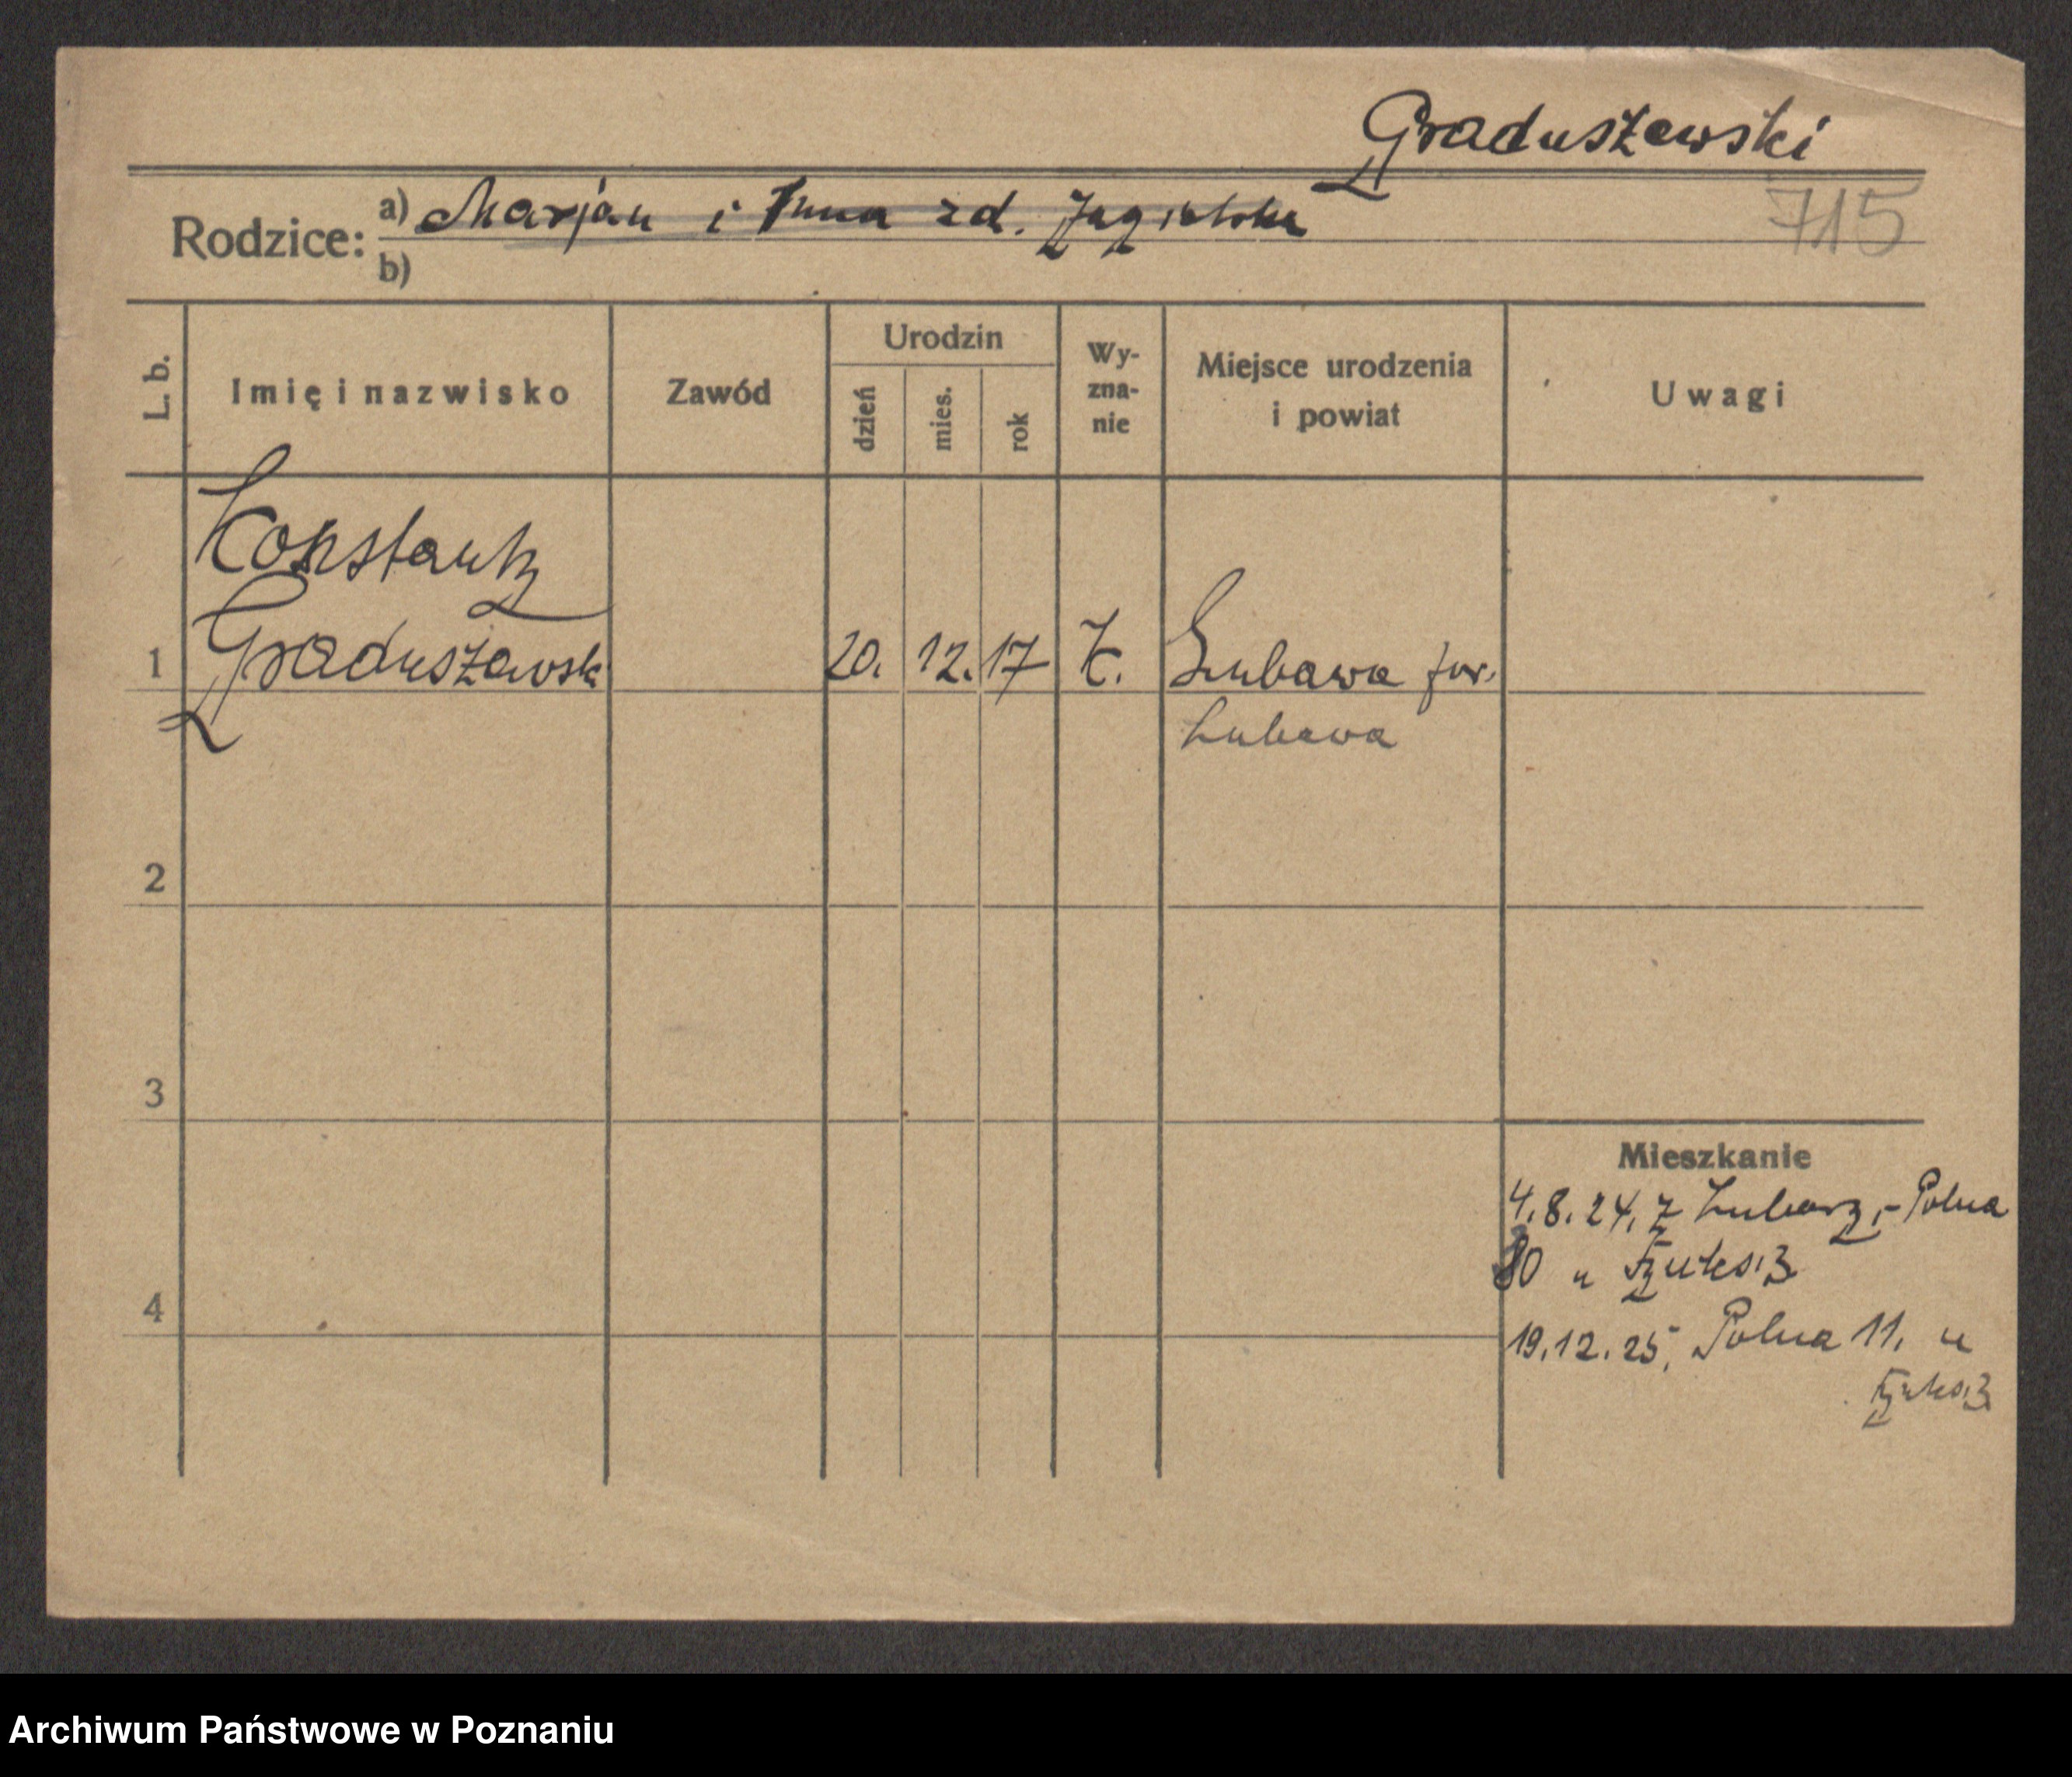 Graduszewski
715
Rodzice: a) Marjan i Anna zd. Jagielska
b)
L. b.
Imię i nazwisko
Zawód
Urodzin
dzień
mies.
rok
Wy-
zna-
nie
Miejsce urodzenia
i powiat
Uwagi
Konstanty
1 Graduszewski 20. 12. 17 K. Lubawa pow.
Lubawa
2
3
Mieszkanie
4.8.24, z Lubawy, - Polna
80 u
4
19.12.25, Polna 11. u
Archiwum Państwowe w Poznaniu